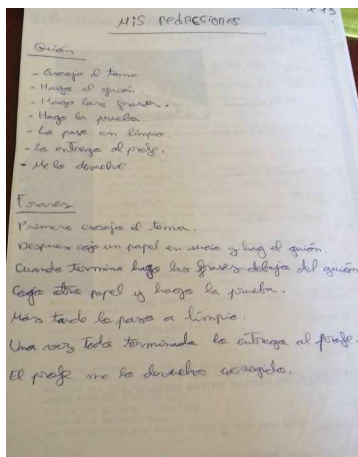 x 15
Mis redacciones
Guión
- Escojo el tema
- Hago el guión.
- Hago las frases.
- Hago la prueba.
- Lo paso en limpio.
- Lo entrego al profe.
- Me lo devuelve.
Frases
Primero escojo el tema.
Despues cojo un papel en sucio y hag el guión.
Cuando termino hago las frases debajo del guión
Cojo otro papel y hago la prueba.
Más tarde lo paso a limpio.
Una vez todo terminado lo entrego al profe.
El profe me lo devuelve corregido.